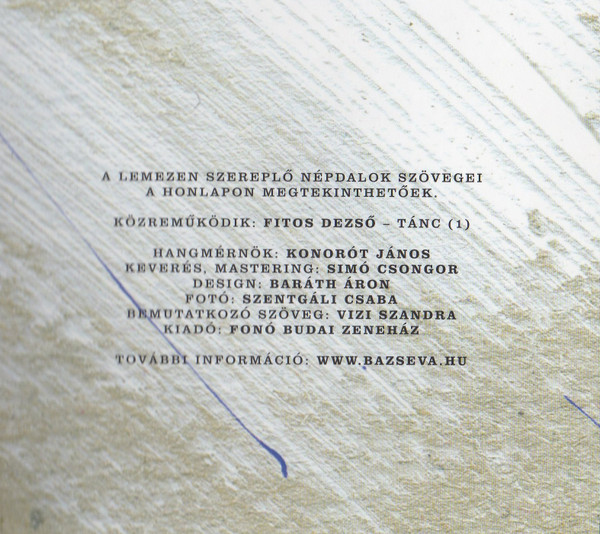 A LEMEZEN SZEREPLŐ NÉPDALOK SZÖVEGEI
A HONLAPON MEGTEKINTHETŐEK.
KÖZREMŰKÖDIK: FITOS DEZSŐ – TÁNC (1)
HANGMÉRNÖK: KONORÓT JÁNOS
KEVERÉS, MASTERING: SIMÓ CSONGOR
DESIGN: BARÁTH ÁRON
FOTÓ: SZENTGÁLI CSABA
BEMUTATKOZÓ SZÖVEG: VIZI SZANDRA
KIADÓ: FONÓ BUDAI ZENEHÁZ
TOVÁBBI INFORMÁCIÓ: WWW.BAZSEVA.HU